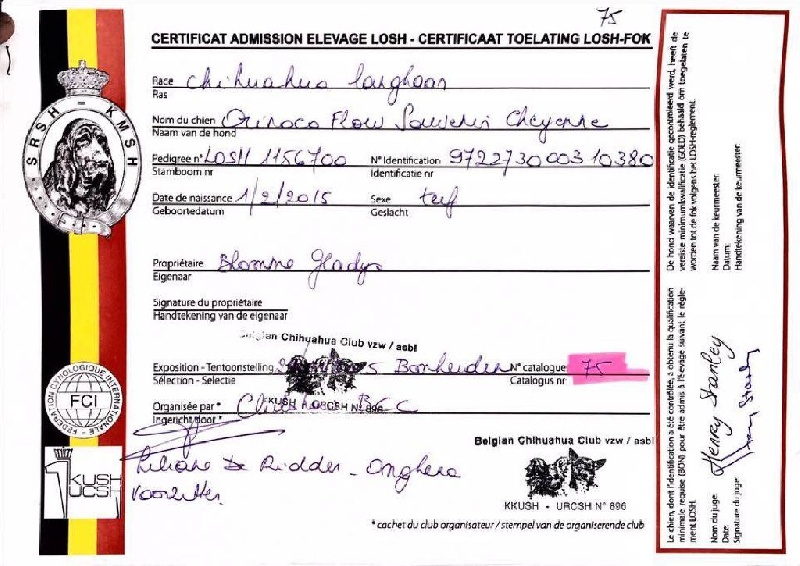 75
CERTIFICAT ADMISSION ELEVAGE LOSH - CERTIFICAAT TOELATING LOSH-FOK
SRSH - KMSH
Race Chihuahua langhaar
Ras
Nom du chien Orinoco Flow Souvenir Cheyenne
Naam van de hond
Pedigree n° LOSH 1156700 N° Identification 972273000310380
Stamboom nr Identificatie nr
Date de naissance 1/2/2015 Sexe teef
Geboortedatum Geslacht
Propriétaire Blomme Gladys
Eigenaar
Signature du propriétaire
Handtekening van de eigenaar
Belgian Chihuahua Club vzw / asbl
Exposition - Tentoonstelling Bonheiden N° catalogue 75
Sélection - Selectie Catalogus nr
KKUSH URCSH N° 896
Organisée par * BCC
Ingericht door *
FEDERATION CYNOLOGIQUE INTERNATIONALE
FCI
Liliane De Ridder - Onghena
Voorzitter
KUSH
UCSH
Belgian Chihuahua Club vzw / asbl
KKUSH - URCSH N° 896
* cachet du club organisateur / stempel van de organiserende club
De hond waarvan de identificatie gecontroleerd werd, heeft de
vereiste minimumkwalificatie (GOED) behaald om toegelaten te
worden tot de fok volgens het LOSH-reglement.
Naam van de keurmeester:
Datum:
Handtekening van de keurmeester:
Le chien, dont l'identification a été contrôlée, a obtenu la qualification
minimale requise (BON) pour être admis à l'élevage suivant le règle-
ment LOSH.
Nom du juge: Henry Stanley
Date:
Signature du juge: Henry Stanley